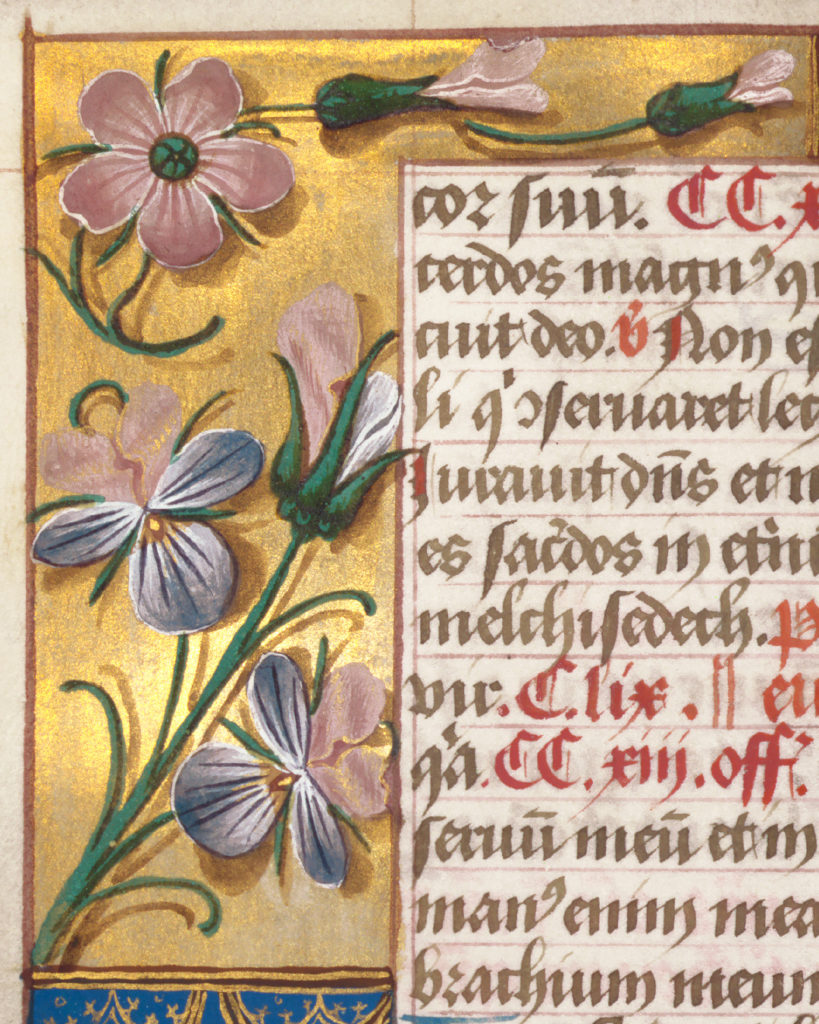 cor suū. CC.x
cerdos magnꝰ q
cuit deo. v̄ Non es
li q ↄseruaret leg
Iurauit dn̄s et n
es sac̄dos in et̄n
melchisedech. P
vir. C.lix. eu
qͣa. CC.xiij. off.
seruū meū et in
manꝰ enim mea
brachium meum